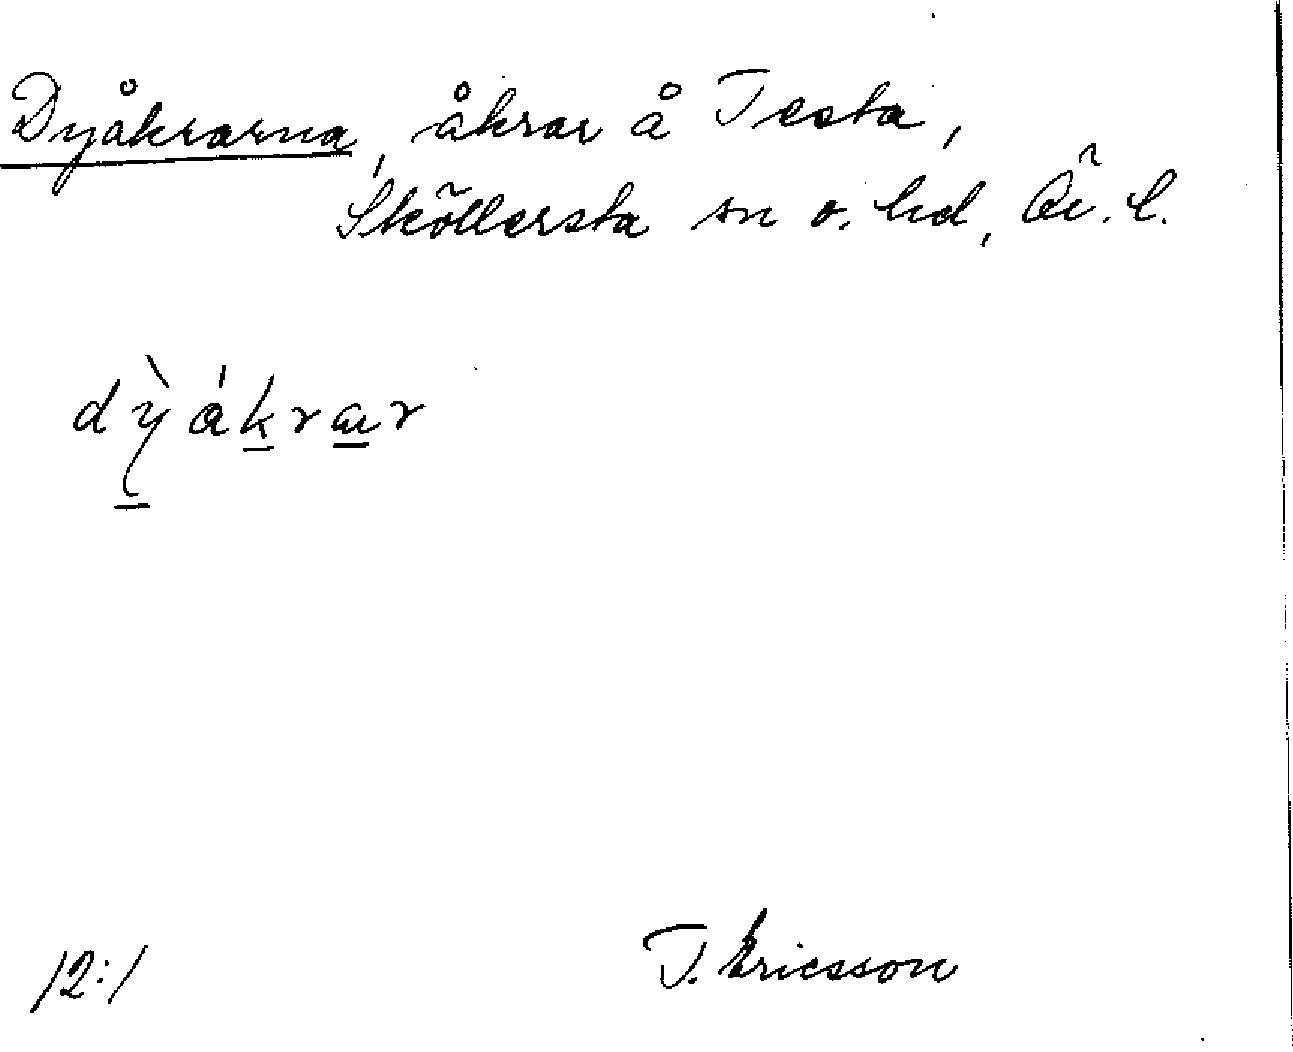 Dyåkrarna, åkrar å Testa,
Sköllersta sn o. hd, Ör. l.
dỳákrar
12:1 T. Ericsson